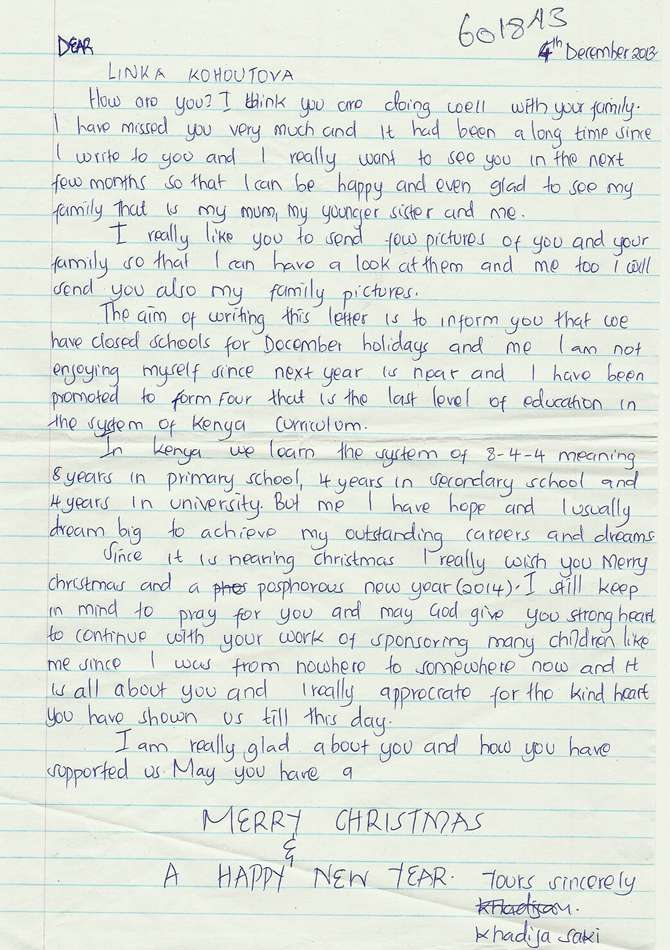 601843
DEAR
4th December 2013
LINKA KOHOUTOVA
How are you? I think you are doing well with your family.
I have missed you very much and it had been a long time since
I write to you and I really want to see you in the next
few months so that I can be happy and even glad to see my
family that is my mum, my younger sister and me.
I really like you to send few pictures of you and your
family so that I can have a look at them and me too I will
send you also my family pictures.
The aim of writing this letter is to inform you that we
have closed schools for December holidays and me I am not
enjoying myself since next year is near and I have been
promoted to form Four that is the last level of education in
the system of Kenya curriculum.
In Kenya we learn the system of 8-4-4 meaning
8 years in primary school, 4 years in secondary school and
4 years in university. But me I have hope and I usually
dream big to achieve my outstanding careers and dreams
Since it is nearing christmas I really wish you Merry
christmas and a phos posphorous new year (2014). I still keep
in mind to pray for you and may God give you strong heart
to continue with your work of sponsoring many children like
me since I was from nowhere to somewhere now and it
is all about you and I really apprecrate for the kind heart
you have shown us till this day.
I am really glad about you and how you have
supported us. May you have a
MERRY CHRISTMAS
&
A HAPPY NEW YEAR. Yours sincerely
Khadija saki